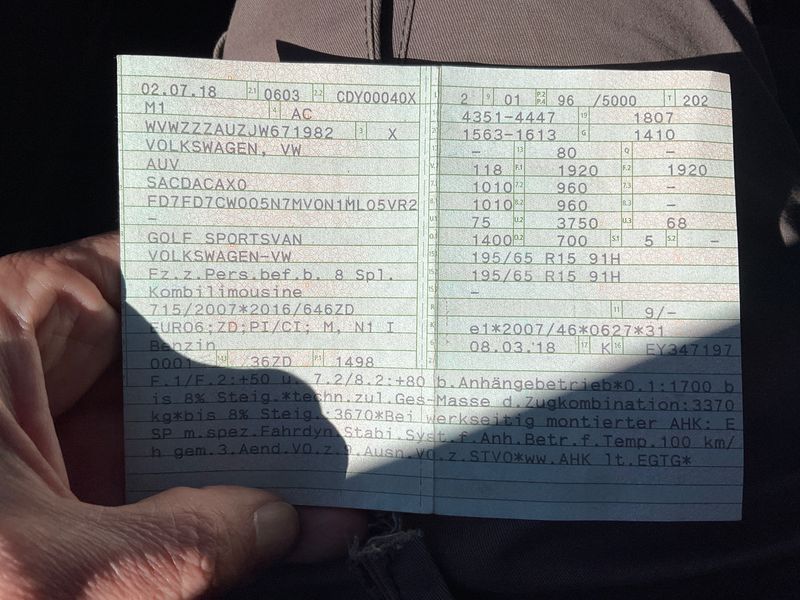 02.07.18 2.1 0603 2.2 CDY00040X
M1 4 AC
WVWZZZAUZJW671982 3 X
VOLKSWAGEN, VW
AUV
SACDACAX0
FD7FD7CW005N7MVON1ML05VR2
-
GOLF SPORTSVAN
VOLKSWAGEN-VW
Fz.z.Pers.bef.b. 8 Spl.
Kombilimousine
715/2007*2016/646ZD
EURO6;ZD;PI/CI; M, N1 I
Benzin
0001 36ZD P.1 1498
2 9 01 P.2 P.4 96 /5000 T 202
4351-4447 19 1807
1563-1613 G 1410
- 13 80 Q -
118 F.1 1920 F.2 1920
1010 7.2 960 7.3 -
1010 8.2 960 8.3 -
75 U.2 3750 U.3 68
1400 O.2 700 S.1 5 S.2 -
195/65 R15 91H
195/65 R15 91H
-
11 9/-
e1*2007/46*0627*31
08.03.18 17 K 16 EY347197
F.1/F.2:+50 u. 7.2/8.2:+80 b.Anhängebetrieb*0.1:1700 b
is 8% Steig.*techn.zul.Ges-Masse d.Zugkombination:3370
kg*bis 8% Steig.:3670*Bei werkseitig montierter AHK: E
SP m.spez.Fahrdyn.Stabi.Syst.f.Anh.Betr.f.Temp.100 km/
h gem.3.Aend.VO.z.9.Ausn.VO.z.STVO*ww.AHK lt.EGTG*